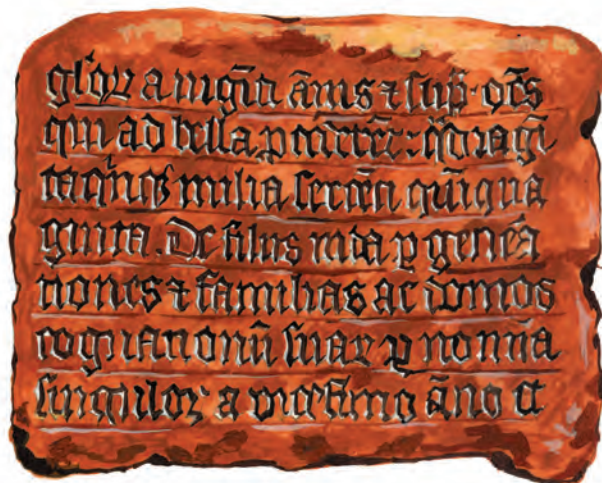 gl'oꝝ a uigīti ānis ⁊ sup̄· oēs
qui ad bella ꝓcederēt: q̄dragī
taqⁱnqꝫ milia sexcēti quīqua
ginta. De filiis iuda ꝑ gene͛a
tiones ⁊ familias ac domos
cognationū suaꝝ ꝑ nomīa
singuloꝝ a uicesimo āno et